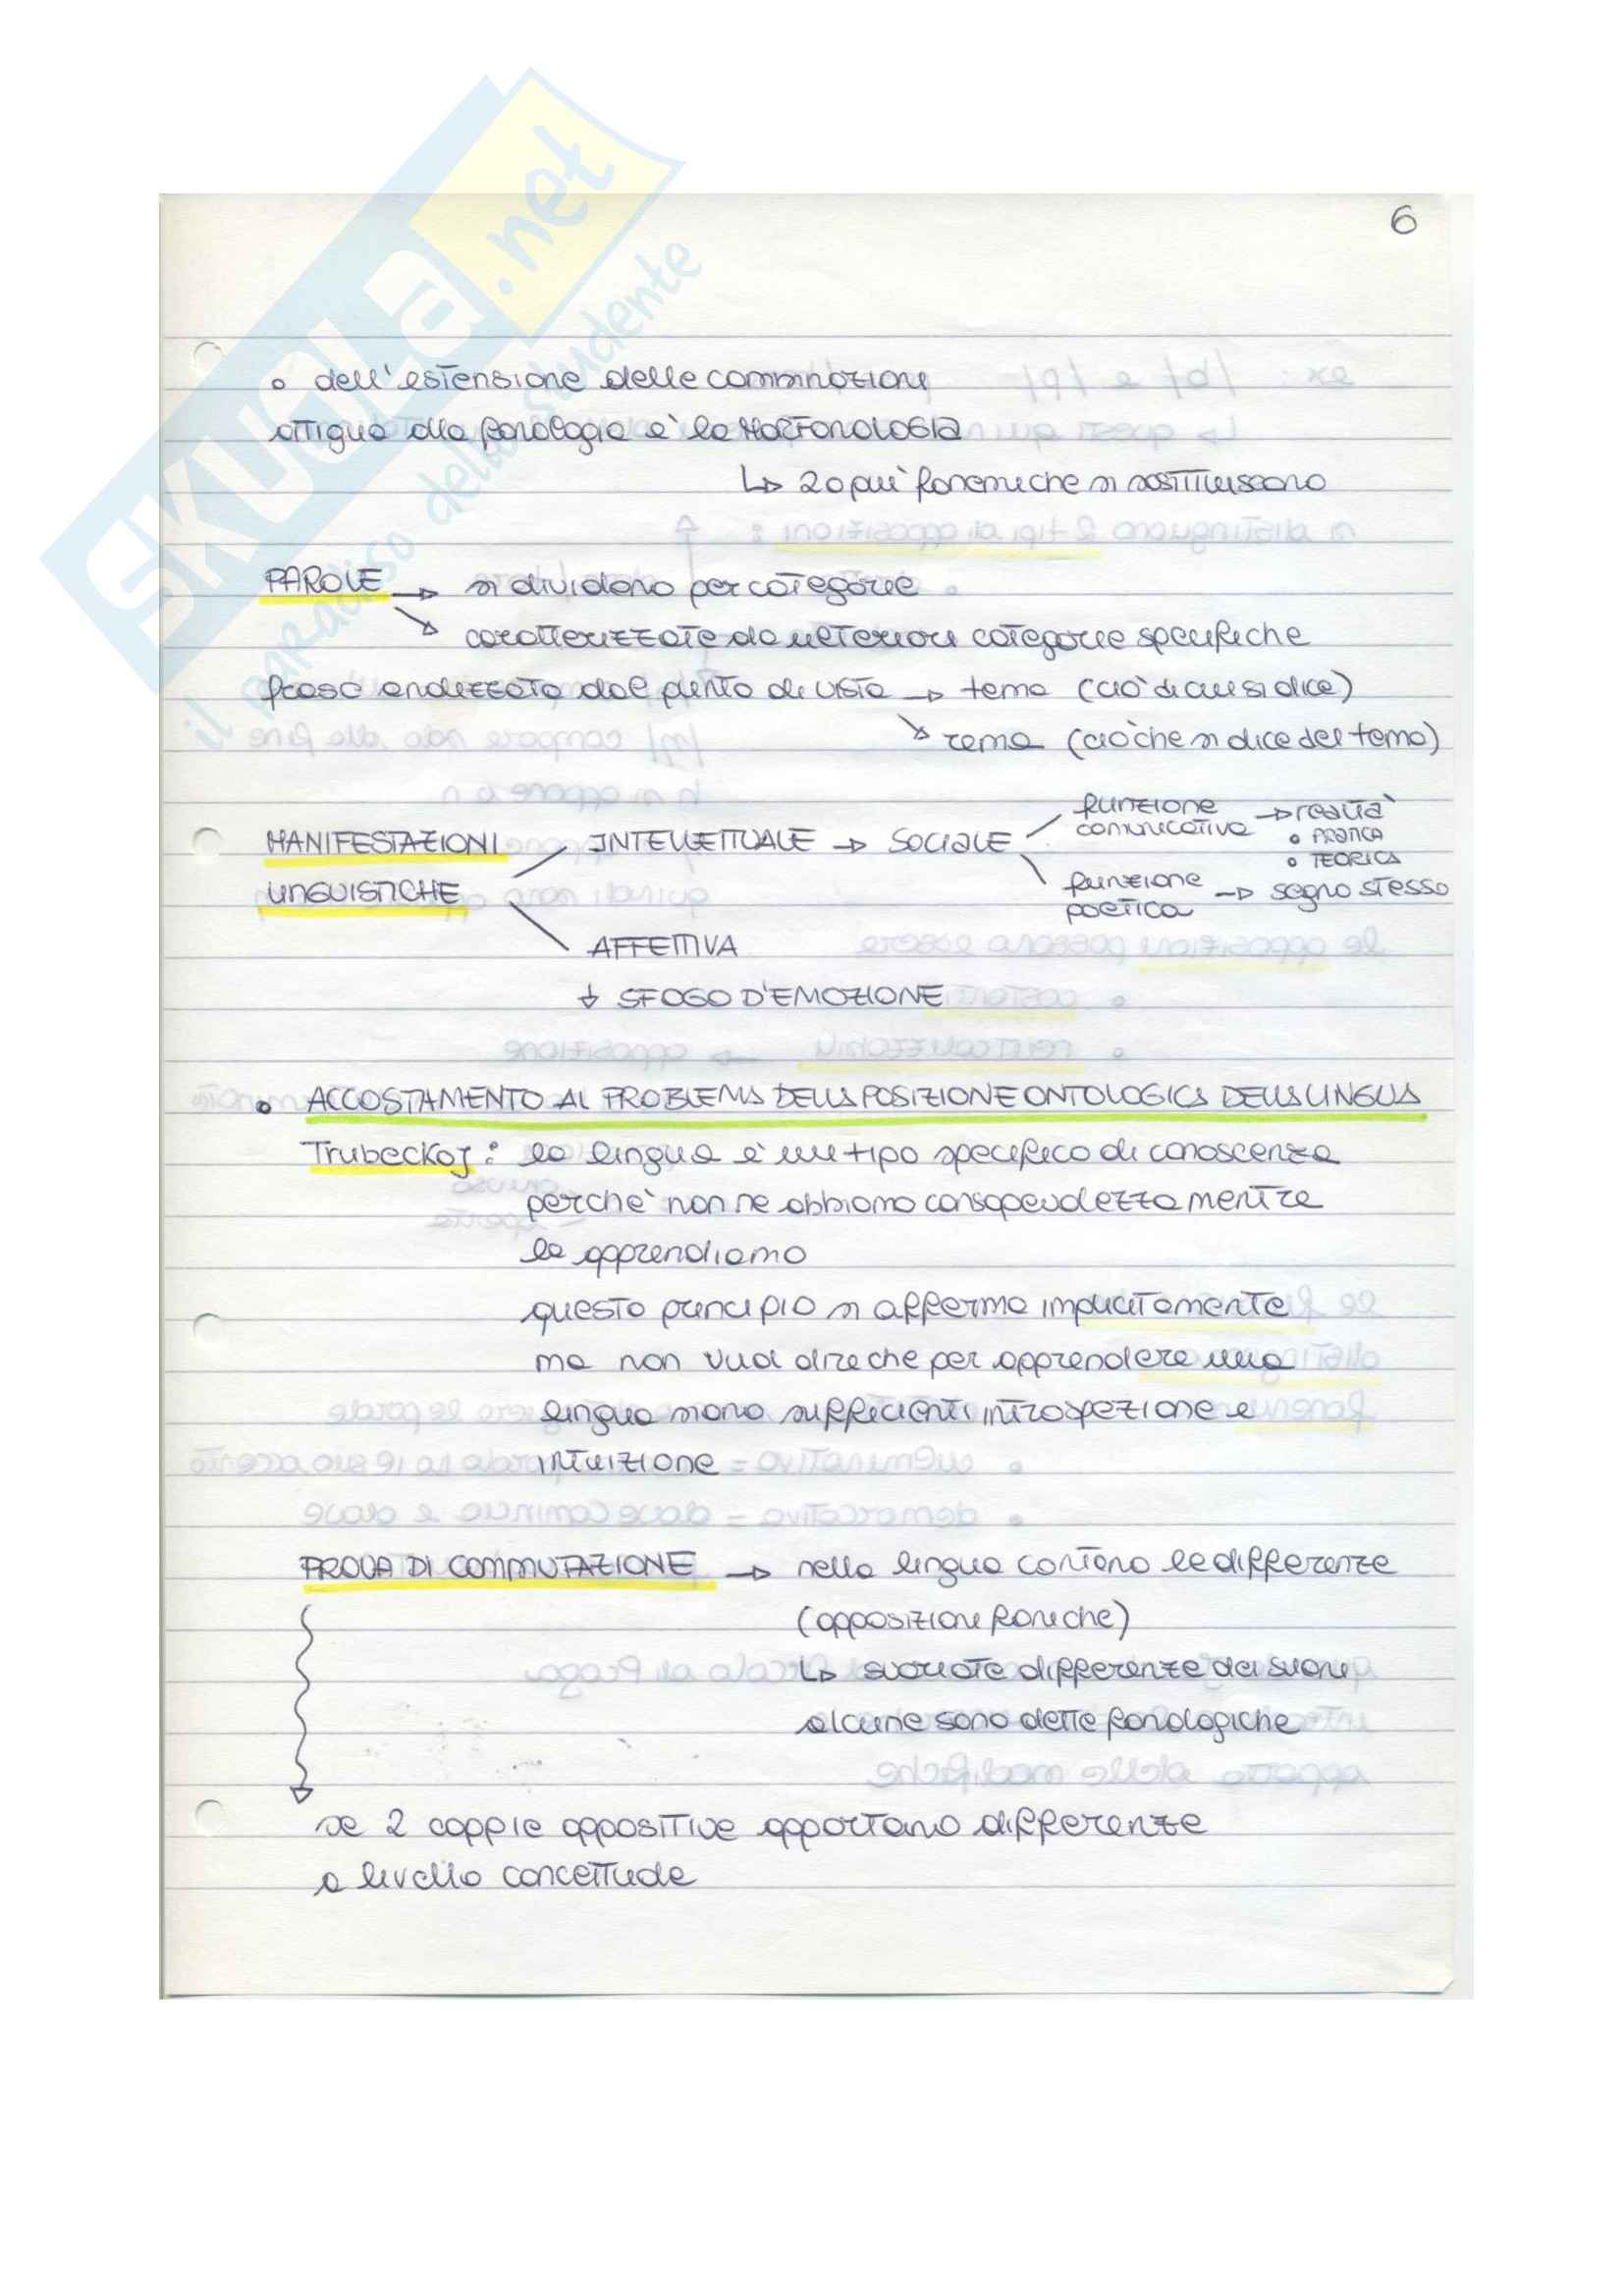 6
SKUOLA.net
il paradiso dello studente
• dell'estensione delle
attigua alla fonologia è la MORFONOLOGIA
↳ 2 o più fonemi che si sostituiscono
PAROLE → si dividono per categorie
↘ caratterizzate da ulteriori categorie specifiche
frase analizzata dal punto di vista → tema (ciò di cui si dice)
↘ rema (ciò che si dice del tema)
MANIFESTAZIONI LINGUISTICHE
INTELLETTUALE → SOCIALE
funzione comunicativa → realtà
• PRATICA
• TEORICA
funzione poetica → segno stesso
AFFETTIVA
↓ SFOGO D'EMOZIONE
• ACCOSTAMENTO AL PROBLEMA DELLA POSIZIONE ONTOLOGICA DELLA LINGUA
Trubeckoj: la lingua è un tipo specifico di conoscenza
perché non ne abbiamo consapevolezza mentre
la apprendiamo
questo principio si afferma implicitamente
ma non vuol dire che per apprendere una
lingua siano sufficienti introspezione e
intuizione
PROVA DI COMMUTAZIONE → nella lingua contano le differenze
(opposizioni foniche)
↳ svariate differenze dei suoni
alcune sono dette fonologiche
se 2 coppie oppositive apportano differenze
a livello concettuale